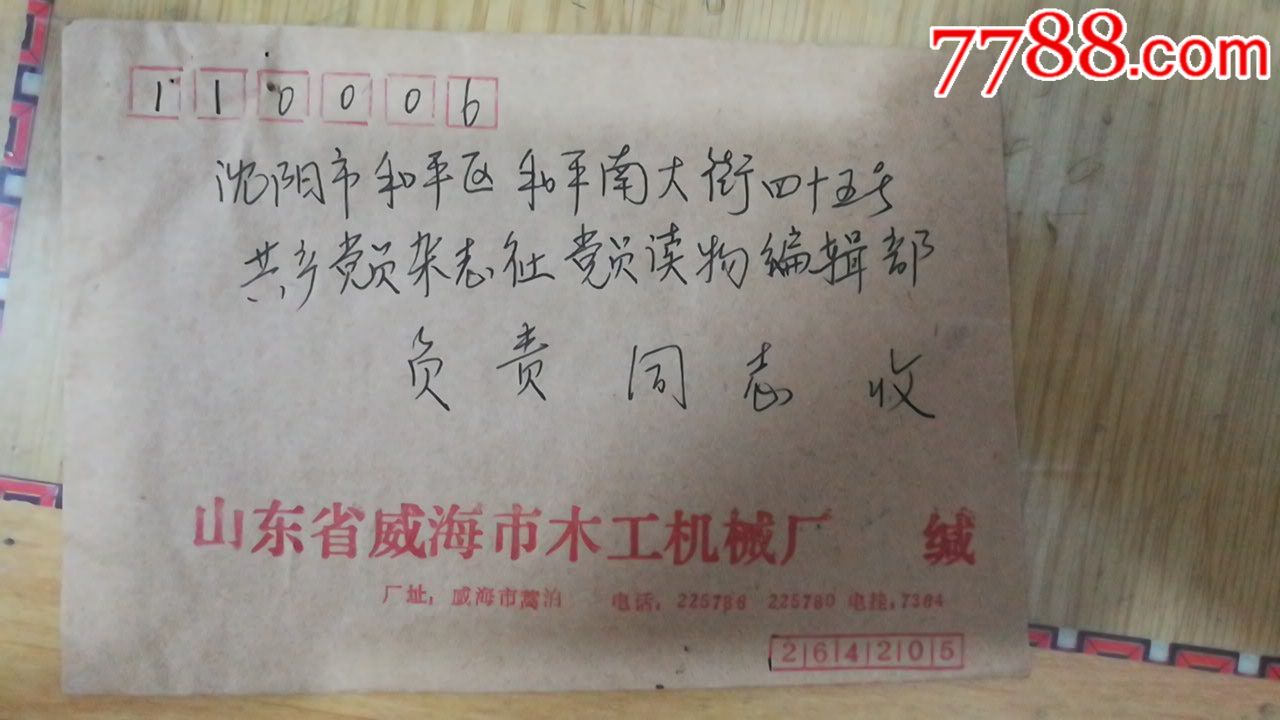 7788.com
110006
沈阳市和平区和平南大街四十五号
共产党员杂志社党员读物编辑部
负责同志收
山东省威海市木工机械厂 缄
厂址：威海市蒿泊 电话：225786 225780 电挂：7364
264205